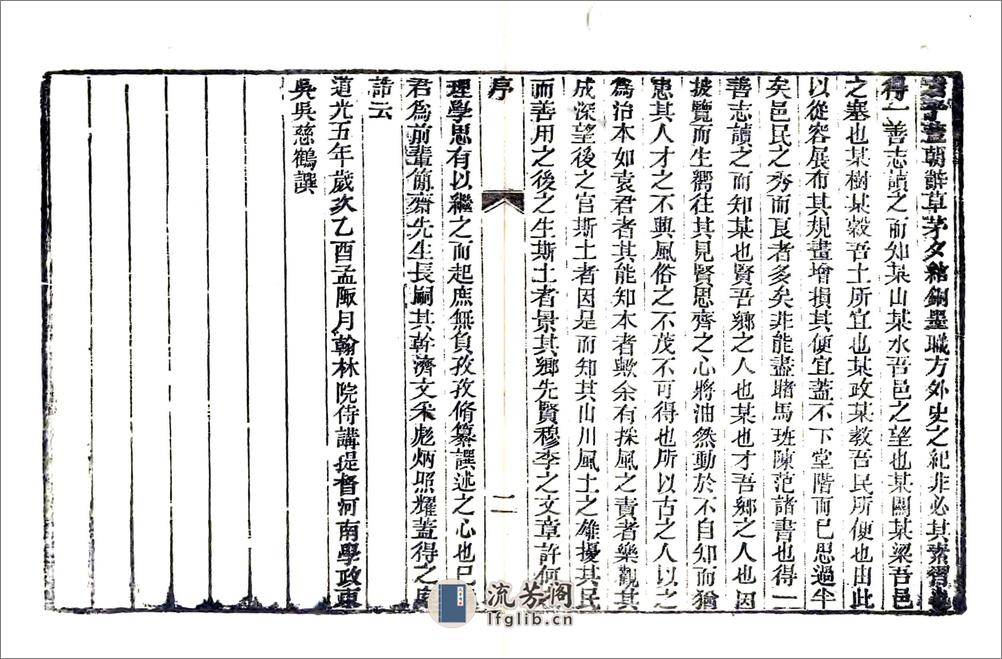 君子晝朝辭草茅夕綰銅墨職方外史之紀非必其素習也
得一善志讀之而知某山某水吾邑之望也某關某梁吾邑
之塞也某樹某穀吾土所宜也某政某教吾民所便也由此
以從容展布其規畫增損其便宜蓋不下堂階而已思過半
矣邑民之秀而良者多矣非能盡睹馬班陳范諸書也得一
善志讀之而知某也賢吾鄉之人也某也才吾鄉之人也因
披覽而生嚮往其見賢思齊之心將油然動於不自知而猶
患其人才之不興風俗之不茂不可得也所以古之人以之
為治本如袁君者其能知本者歟余有採風之責者樂觀其
成深望後之官斯土者因是而知其山川風土之雄擾其民
而善用之後之生斯土者景其鄉先賢穆李之文章許何
序
二
理學思有以繼之而起庶無負孜孜脩纂譔述之心也已
君為前輩簡齋先生長嗣其幹濟文采彪炳照耀蓋得之庭
誥云
道光五年歲次乙酉孟陬月翰林院侍講提督河南學政東
吳吳慈鶴譔
流芳閣
lfglib.cn